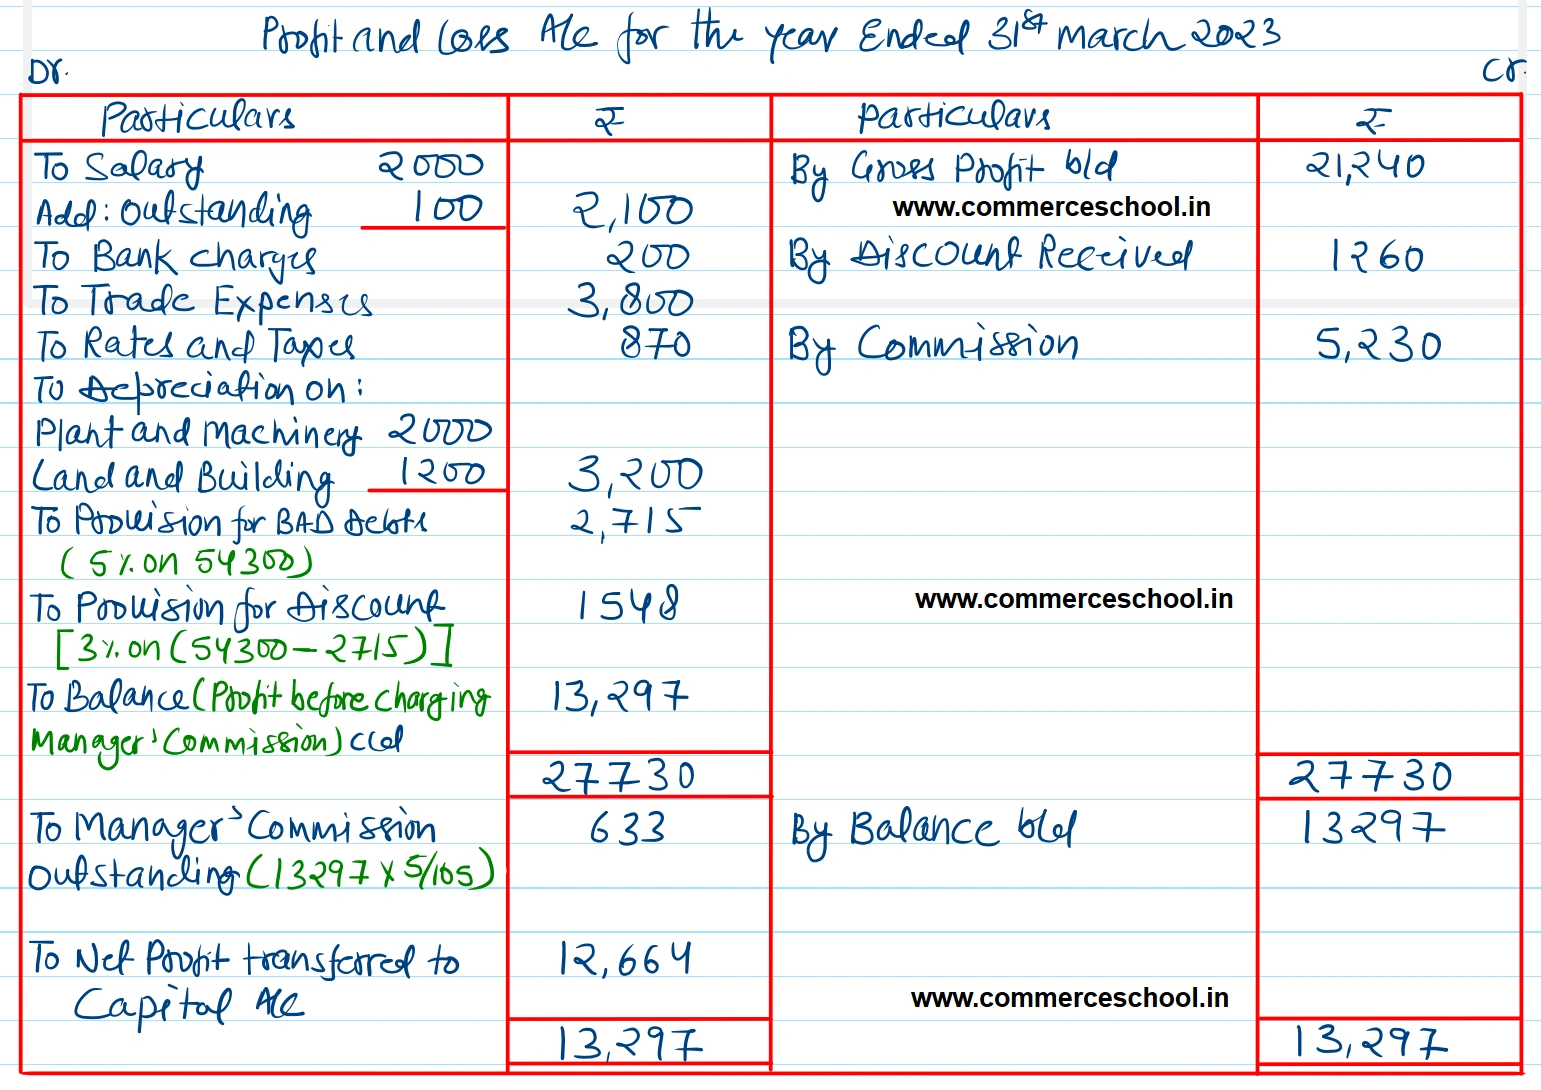 Profit and Loss A/c for the year Ended 31st March 2023
Dr. Cr.
Particulars ₹ Particulars ₹
To Salary 2000 By Gross Profit b/d 21,240
Add: Outstanding 100 2,100 www.commerceschool.in
To Bank charges 200 By Discount Received 1260
To Trade Expenses 3,800
To Rates and Taxes 870 By Commission 5,230
To Depreciation on:
Plant and Machinery 2000
Land and Building 1200 3,200
To Provision for BAD Debts 2,715
(5% on 54300)
To Provision for Discount 1548 www.commerceschool.in
[3% on (54300-2715)]
To Balance (Profit before charging 13,297
Manager's Commission) c/d
27730 27730
To Manager's Commission 633 By Balance b/d 13297
Outstanding (13297 x 5/105)
To Net Profit transferred to 12,664
Capital A/c www.commerceschool.in
13,297 13,297